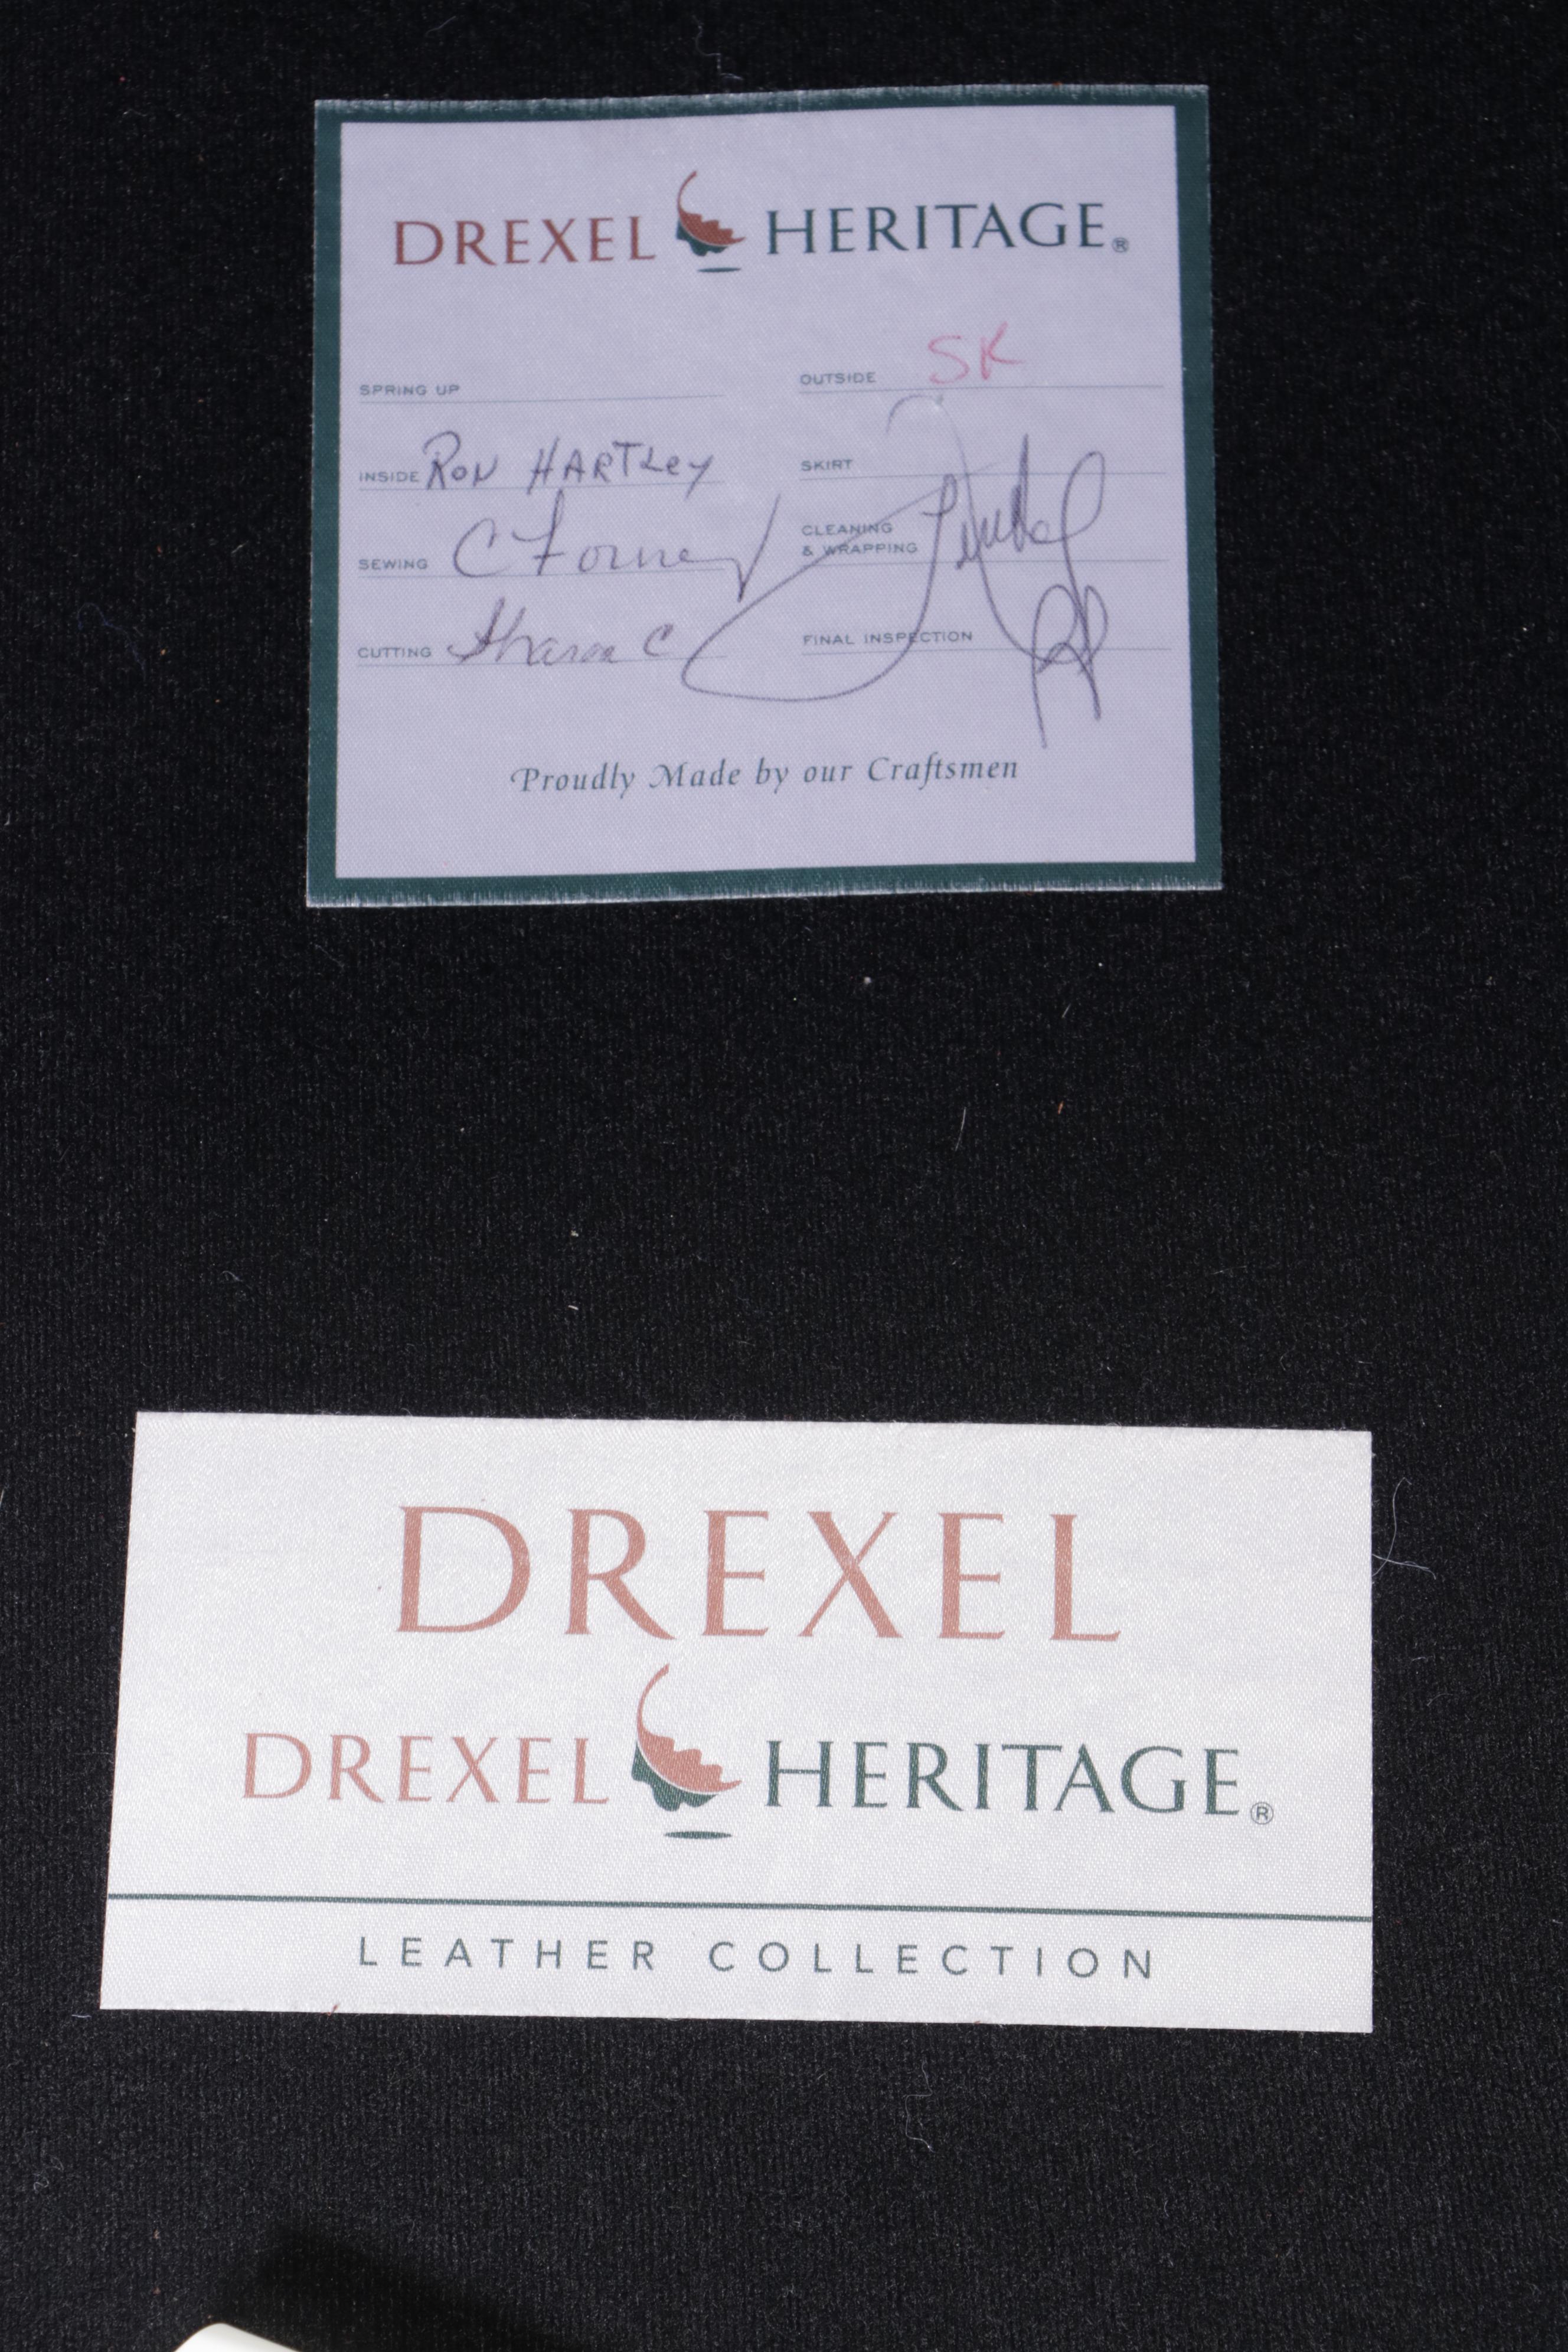 DREXEL HERITAGE®
SPRING UP
INSIDE RON HARTLEY
SEWING C Forney
CUTTING Sharon C
OUTSIDE SK
SKIRT
CLEANING
& WRAPPING
FINAL INSPECTION
Proudly Made by our Craftsmen
DREXEL
DREXEL HERITAGE®
LEATHER COLLECTION